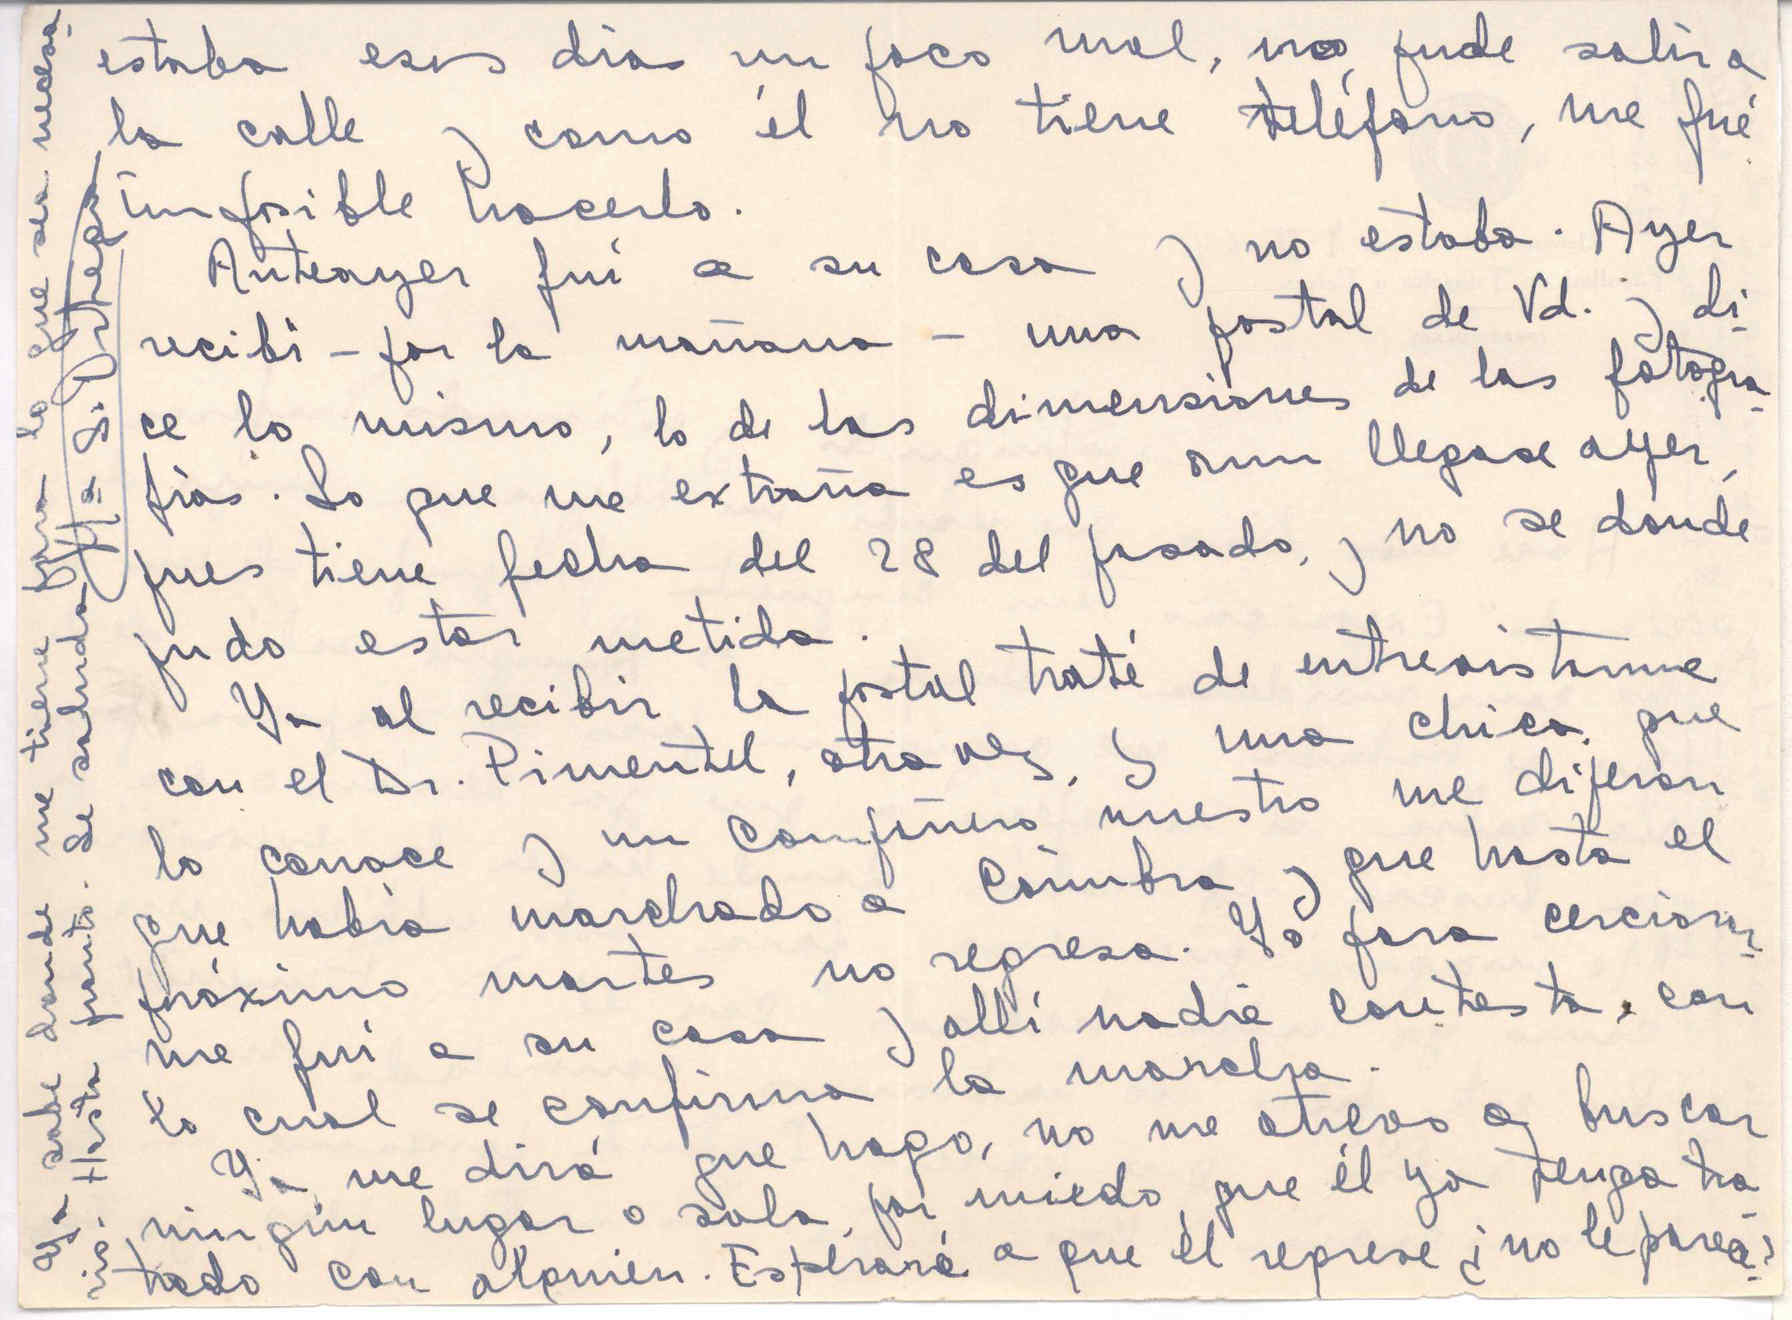 estaba esos dias un poco mal, no pude salir a
la calle y como él no tiene teléfono, me fué
imposible hacerlo.
Anteayer fui a su casa y no estaba. Ayer
recibi - por la mañana - una postal de Vd. y di-
ce lo mismo, lo de las dimensiones de las fotogra-
fias. Lo que me extraña es que aun llegase ayer,
pues tiene fecha del 28 del pasado, y no se donde
pudo estar metida.
Ya al recibir la postal traté de entrevistarme
con el Dr. Pimentel, otra vez, y una chica que
lo conoce y un compañero nuestro me dijeron
que habia marchado a Coimbra y que hasta el
próximo martes no regresa. Yo para cercior-
me fui a su casa y alli nadie contesta, con
lo cual se confirma la marcha.
Ya me dirá que hago, no me atrevo a buscar
ningún lugar o sala, por miedo que él ya tenga tra-
tado con alguien. Esperaré a que él regrese ¿no le parece?
Ya sabe donde me tiene para lo que sea necesa-
rio. Hasta pronto. Le saluda Mª S. Ortega